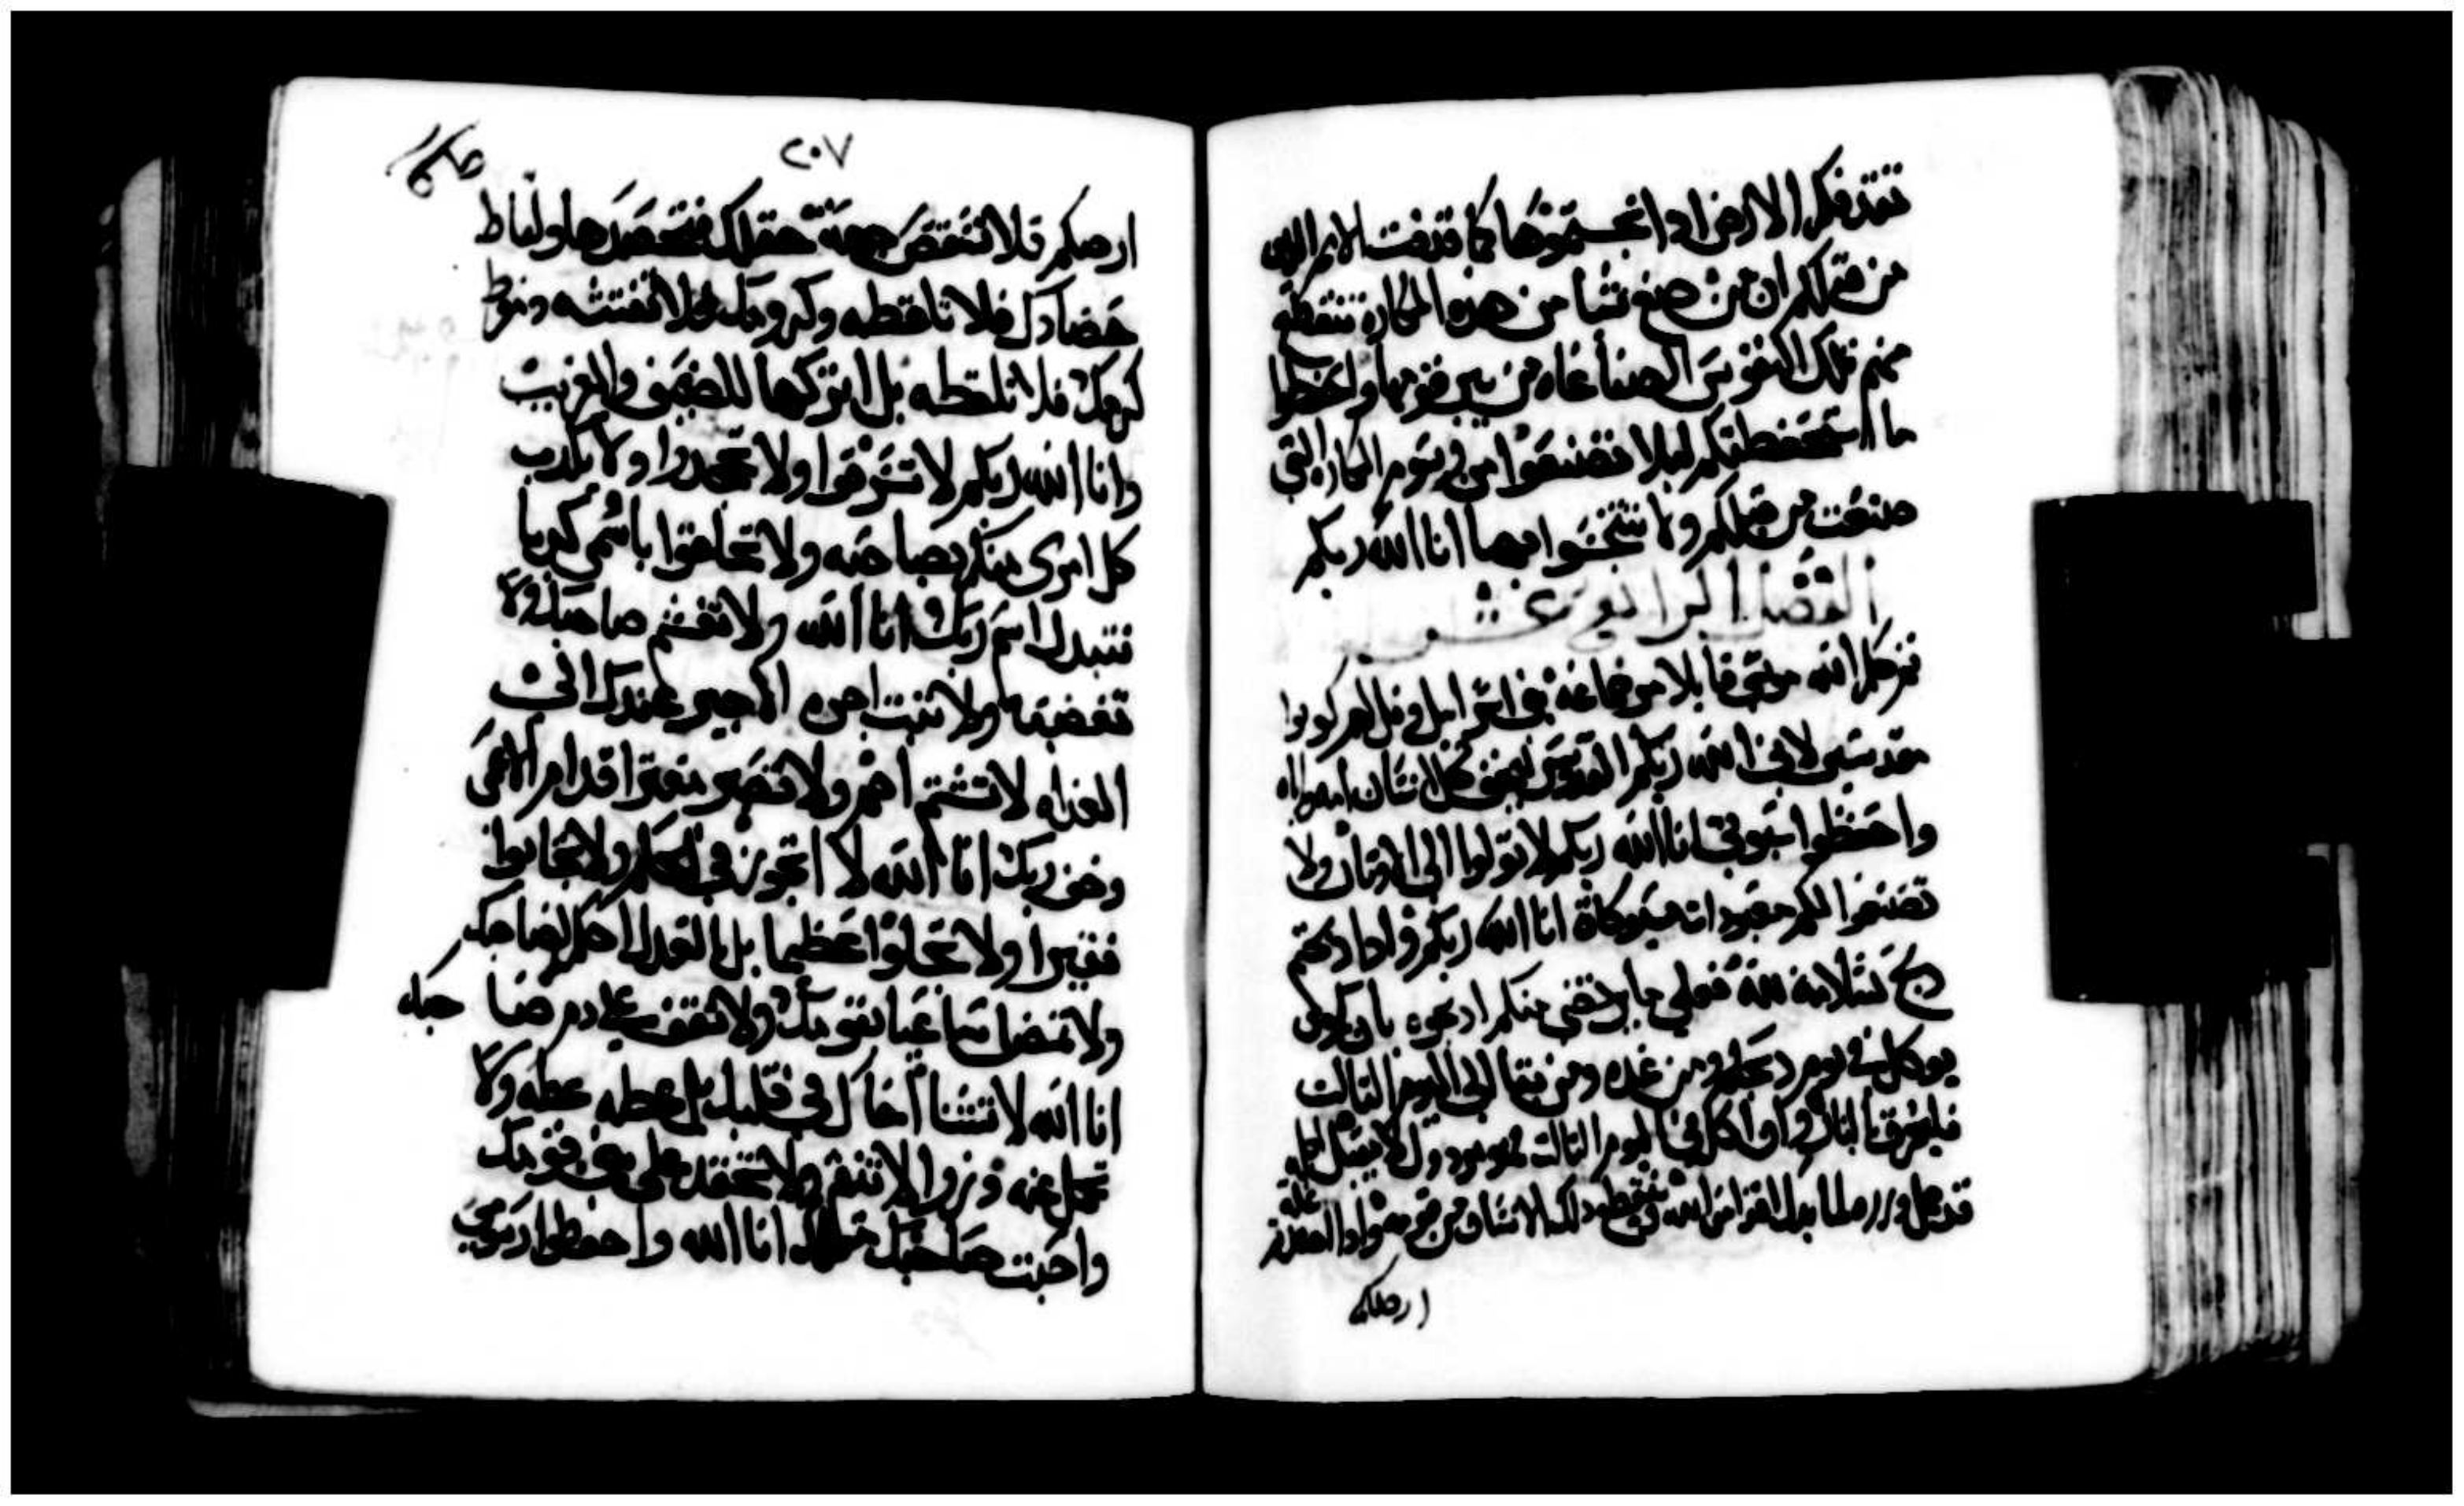 تقذفكم الارض اذا نجستموها كما قذفت الامم الذين
من قبلكم ان من صنع شيا من هذه المكاره تنقطع
منهم تلك النفوس الصناعاه من بين قومها واحفظوا
ما استحفظتكم ليلا تصنعوا من رسوم المكاره التي
صنعت من قبلكم ولا تتنجسوا بها انا الله ربكم
الفصل الرابع عشر
ثم كلم الله موسى قايلا مر جماعة بني اسراييل وقل لهم كونوا
مقدسين لاني انا الله ربكم القدوس كل انسان امه واباه
واحفظوا سبوتي انا الله ربكم لا تولوا الى الاوثان ولا
تصنعوا لكم معبودات مسبوكاة انا الله ربكم واذا ذبحتم
ذبح سلامه لله فعلي ما يرتضي منكم اذبحوه بان يكون
يوكل في يوم ذبحكم ومن غده ومن بقا الى اليوم التالت
فليحرق بالنار وان اكل في اليوم التالت فهو مردول لا يقبل
قد حمل وزر الله وينقطع ذلك الانسان من قومه واذا
ارضكم
٢٠٧
ارضكم فلا تنقص جهة حقلك فتحصدها ولقاط
حصادك فلا تلقطه وكرومك فلا تفتشه ونوط
كرمك فلا تلقطه بل اتركها للضعيف والغريب
وانا الله ربكم لا تسرقوا ولا تجحدوا ولا يكذب
كل امرى منكم بصاحبه ولا تحلفوا باسمي كدبا
فتبدل اسم ربك انا الله ولا تغشم صاحبك ولا
تغصبه ولا تبت اجرة الاجير عندك الى
الغداه لا تشتم اخرس ولا تصير معترا قدام الاعمى
وخف ربك انا الله لا تجوز في الحكم ولا تحابوا
فقيرا ولا تجلوا عظيما بل بالعدل احكم لصاحبك
ولا تمضى ساعيا بقومك ولا تقف على دم صا حبك
انا الله لا تشنا اخاك في قلبك بل عظه عظه ولا
تحمل عنه وزرا لا تنقم ولا تحقد على بني قومك
واحبب صاحبك مثلك انا الله واحفظوا رسومي